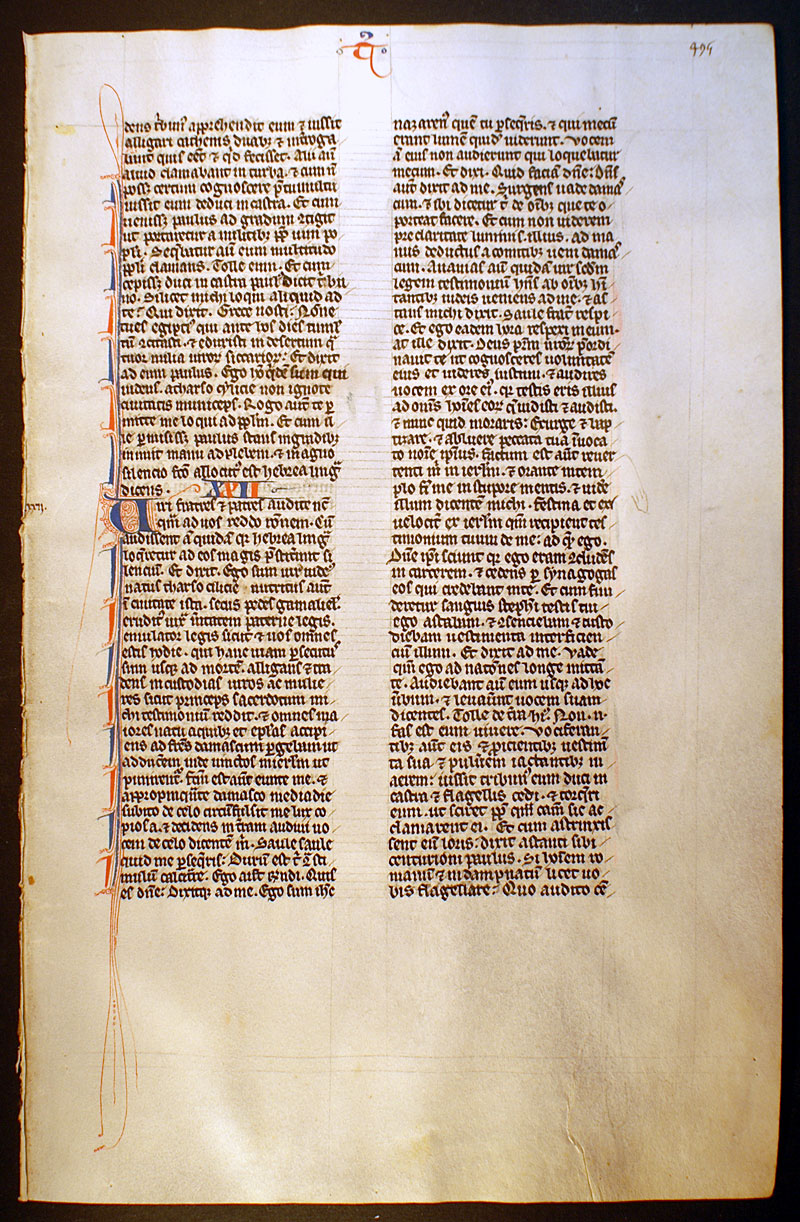 495
dens tribun᷒ apprehendit eum ⁊ iussit
alligari cathenis duab᷒ ⁊ īt̄roga
bant quis eēt ⁊ qͥd fecisset. Alii aūt
aliud clamabant in turba. ⁊ cum nō
posset certum cognoscere p̄ tumultū
iussit eum deduci in castra. Et cum
uenisset paulus ad gradum ↄtigit
ut portaretur a militib᷒ ꝓpt̄ uim po
puli. Sequebatur aūt eum multitudo
ppli clamans. Tolle eum. Et cum
cepisset duci in castra paul᷒ dicit tͥbu
no. Si licet michi loqui aliquid ad
te? Qui dixit. Grece nosti? Nōne
tu es egipti᷒ qui ante hos dies tumul
tū ↄcitasti. ⁊ eduxisti in desertum qͣ
tuor milia uiror᷒ siccarior᷒? Et dixit
ad eum paulus. Ego hō qͥdē sum qui
iudeus. a tharso cylicie non ignote
ciuitatis municeps. Rogo aūt te ꝑ
mitte me loqui ad pplm. Et cum il
le ꝑmisisset paulus stans in gͣdib᷒
innuit manu ad plebem. ⁊ magno
silencio fc̄o allocut᷒ est hebrea lingͣ
dicens. XXII
Uiri fratres ⁊ patres audite ⁊c
xxii.
qͣm ad uos reddo rōnem. Cū
audissent aūt quidā qꝛ hebrea lingͣ
loqͥretur ad eos magis p̄stiterunt si
lencium. Et dixit. Ego sum uir iude᷒
natus tharso cilicie. nutritus aūt
ī ciuitate ista. secus pedes gamaliel.
erudit᷒ iux̄ ūitatem paterne legis.
emulator legis sicut ⁊ uos omnes
estis hodie. qui hanc uiam ꝑsecutus
sum usqꝫ ad mortē. alligans ⁊ tra
dens in custodias uiros ac mulie
res sicut princeps sacerdotum mi
chi testimoniū reddit. ⁊ omnes ma
iores natu a quib᷒ et epl̄as accipi
ens ad frēs damascum ꝑgebam ut
adducerem inde uinctos in ierlm ut
punirent᷒. fc̄m est aūt eunte me. ⁊
appropinqͣnte damasco media die
subito de celo circūfulsit me lux co
piosa. ⁊ decidens in t̄ram audiui uo
cem de celo dicentē m̄. Saule saule
quid me ꝑseqͥris? Durum est t̄ ↄͣ sti
mulum calcitͣre. Ego aūt r̄ndi. Quis
es dn̄e? Dixitqꝫ ad me. Ego sum ihc
nazaren᷒ quē tu ꝑseqͥris. ⁊ qui mecū
erant lumē quidē uiderunt. Vocem
aūt eius non audierunt qui loquebatur
mecum. Et dixi. Quid faciā dn̄e? Dn̄s
aūt dixit ad me. Surgens uade damas᷒
cum. ⁊ ibi dicetur t̄ de om̄ib᷒ que te o
porteat facere. Et cum non uiderem
pre claritate luminis illius. ad ma
nus deductus a comitib᷒ ueni damas᷒
cum. Ananias aūt quidā uir scd̄m
legem testimonium hn̄s ab om̄ib᷒ hī
tantib᷒ iudeis ueniens ad me. ⁊ as
tans michi dixit. Saule frat̄ respi
ce. Et ego eadem hora respexi in eum.
at ille dixit. Deus patrū nr̄or᷒ p̄ordi
nauit te ut cognosceres uoluntatē
eius et uideres iustum. ⁊ audires
uocem ex ore ei᷒. qꝛ testis eris illius
ad om̄s hoīes eor᷒ q̄ uidisti ⁊ audisti.
⁊ nunc quid moraris? Exurge ⁊ bap
tizare. ⁊ ablue peccata tua īuoca
to noīe ip̄ius. factum est aūt reuer
tenti m̄ in ierlm. ⁊ orante in tem
plo fi᷒i me in stupore mentis. ⁊ uide
illum dicentē michi. festina et exi
uelocit̄ ex ierlm qͣm recipient tes
timonium tuum de me: ad qͣ ego.
Dn̄e ip̄i sciunt qꝛ ego eram ↄcludēs
in carcerem. ⁊ cedens ꝑ synagogas
eos qui credebant in te. Et cum fun
deretur sanguis stephi testis tui
ego astabam. ⁊ ↄsenciebam ⁊ custo
diebam uestimenta interficien
ciū illum. Et dixit ad me. Vade
qͣm ego ad natōnes longe mittā
te. Audiebant aūt eum usqꝫ ad hoc
ūbum. ⁊ leuauit uocem suam
dicentes. Tolle de t̄ra hi᷒. Non n.
fas est eum uiuere. Vociferan
tib᷒ aūt eis ⁊ ꝓicientib᷒ uestim̄
ta sua ⁊ puluerem iactantib᷒ in
aerem: iussit tribun᷒ eum duci in
castra ⁊ flagellis cedi. ⁊ torqͥri
eum. ut sciret ꝓpt̄ qͣm cām sic ac
clamarent ei. Et cum astrinxis
sent eū loris: dixit astanti sibi
centurioni paulus. Si hoīem ro
manū ⁊ indampnatū licet uo
bis flagellare? Quo audito cē